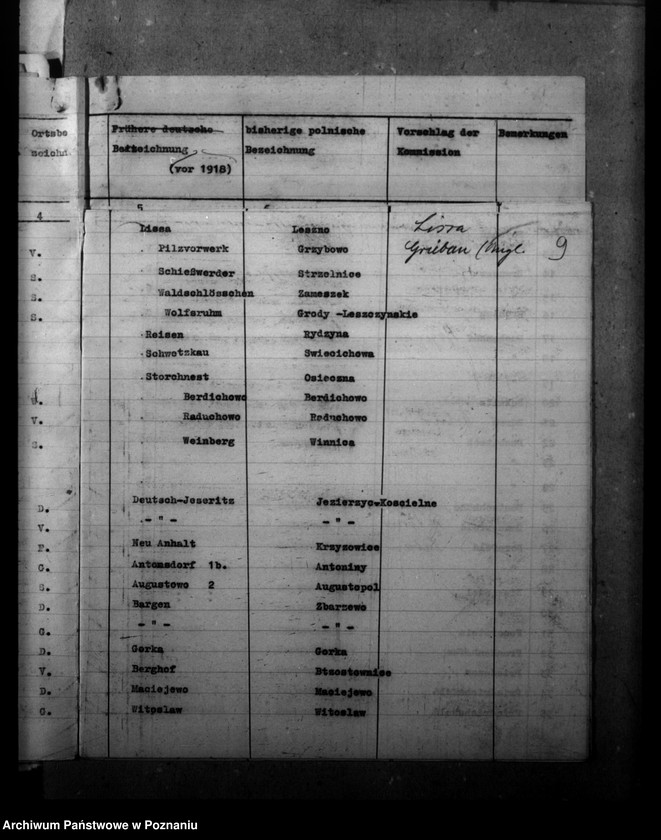 Ortsbe Frühere deutsche bisherige polnische Vorschlag der Bemerkungen
zeichn. Bezeichnung Bezeichnung Kommission
(vor 1918)
4 5
Lissa Leszno Lissa
V. Pilzvorwerk Grzybowo 9
S. Schießwerder Strzelnice
S. Waldschlösschen Zameszek
S. Wolfsruhm Grody -Leszczynskie
Reisen Rydzyna
Schwetzkau Swiecichowa
Storchnest Osieczna
Berdichowo Berdichowo
V. Raduchowo Raduchowo
S. Weinberg Winnica
D. Deutsch-Jeseritz Jezierzyc-Koscielne
V. - " - - " -
F. Neu Anhalt Krzyzowice
G. Antonsdorf 1b. Antoniny
S. Augustowo 2 Augustopol
D. Bargen Zbarzewo
G. - " - - " -
D. Gorka Gorka
V. Berghof Btzostownice
D. Maciejewo Maciejewo
G. Witoslaw Witoslaw
Archiwum Państwowe w Poznaniu